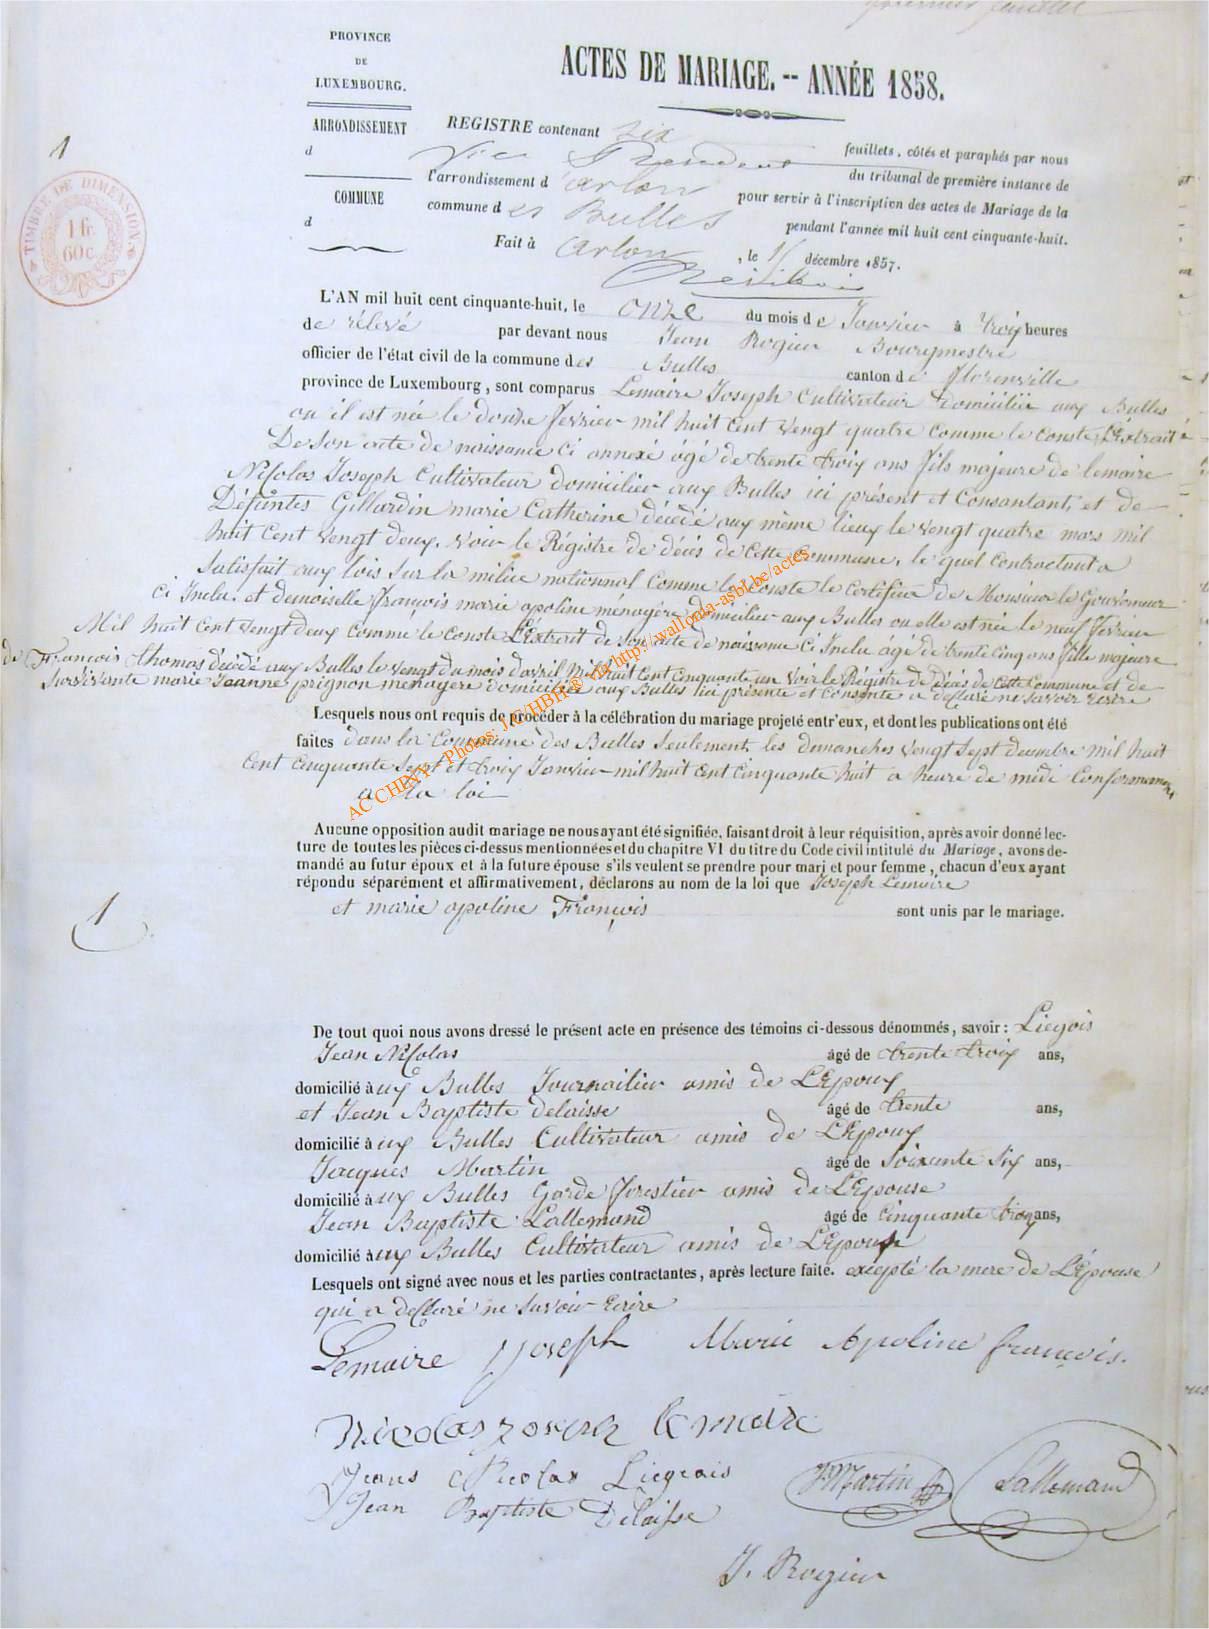 premier feuillet
PROVINCE
DE
LUXEMBOURG.
ACTES DE MARIAGE. -- ANNÉE 1858.
ARRONDISSEMENT
d
COMMUNE
d
1
TIMBRE DE DIMENSION
1 fr.
60 c.
REGISTRE contenant six feuillets, côtés et paraphés par nous
Vice Président du tribunal de première instance de
l'arrondissement d'arlon pour servir à l'inscription des actes de Mariage de la
commune des Bulles pendant l'année mil huit cent cinquante-huit.
Fait à arlon, le décembre 1857.
L'AN mil huit cent cinquante-huit, le onze du mois de Janvier à trois heures
de rélevé par devant nous Jean Rogier Bourgmestre
officier de l'état civil de la commune des Bulles canton de Florenville
province de Luxembourg, sont comparus Lemaire Joseph Cultivateur domicilié aux Bulles
ou il est née le douze fevrier mil huit cent vengt quatre comme le conste L'Extrait
De son acte de naissance ci annexé âgé de trente trois ans fils majeure de lemaire
Nicolas Joseph Cultivateur domicilier aux Bulles ici présent et Consantant, et de
Défuntes Gillardin marie Catherine décédé aux même lieux le vengt quatre mars mil
huit Cent vengt deux, voir le Régistre de décès de Cette Commune, le quel Contractant a
Satisfait aux lois sur la milice nationnal Comme le conste le Certificat de Monsieur le Gouverneur
Ci Inclu. et demoiselle françois marie apoline ménagère domicilier aux Bulles ou elle est née le neuf fevrier
Mil huit cent vengt deux comme le conste L'Extrait de son acte de naissance Ci Inclu âgé de trente cinq ans fille majeure
de François thomas décédé aux Bulles le vengt du mois d'avril Mil huit Cent Cinquante un voir le Régistre de Décès de Cette Commune et de
Survivante marie Jeanne prignon menagère domiciliée aux Bulles ici présente et Consente a déclaré ne savoir Ecrire
Lesquels nous ont requis de procéder à la célébration du mariage projeté entr'eux, et dont les publications ont été
faites dans la Commune des Bulles Seulement, les dimanches vengt Sept decembre mil huit
Cent Cinquante Sept et trois Janvier mil huit Cent Cinquante huit a heure de midi Conformement
a la loi
AC CHINY - Photos: J.C/HBH ® via http://wallonia-asbl.be/actes
Aucune opposition audit mariage ne nous ayant été signifiée, faisant droit à leur réquisition, après avoir donné lec-
ture de toutes les pièces ci-dessus mentionnées et du chapitre VI du titre du Code civil intitulé du Mariage, avons de-
mandé au futur époux et à la future épouse s'ils veulent se prendre pour mari et pour femme, chacun d'eux ayant
répondu séparément et affirmativement, déclarons au nom de la loi que Joseph Lemaire
et marie apoline François sont unis par le mariage.
1
De tout quoi nous avons dressé le présent acte en présence des témoins ci-dessous dénommés, savoir: Liegois
Jean Nicolas âgé de trente trois ans,
domicilié à ux Bulles Journailier amis de L'Epoux
et Jean Baptiste delaisse âgé de trente ans,
domicilié à ux Bulles Cultivateur amis de L'Epoux
Jacques Martin âgé de Soixante Six ans,
domicilié à ux Bulles Garde forestier amis de L'Epouse
Jean Baptiste Lallemand âgé de Cinquante trois ans,
domicilié à ux Bulles Cultivateur amis de L'Epouse
Lesquels ont signé avec nous et les parties contractantes, après lecture faite. excepté la mere de L'Epouse
qui a declaré ne savoir Ecrire
Lemaire Joseph Marie Apoline françois.
Nicolas joseph lemaire
Jeans Nicolas Liegeais J Martin Lallemand
Jean Baptiste Delaisse
J. Rogier